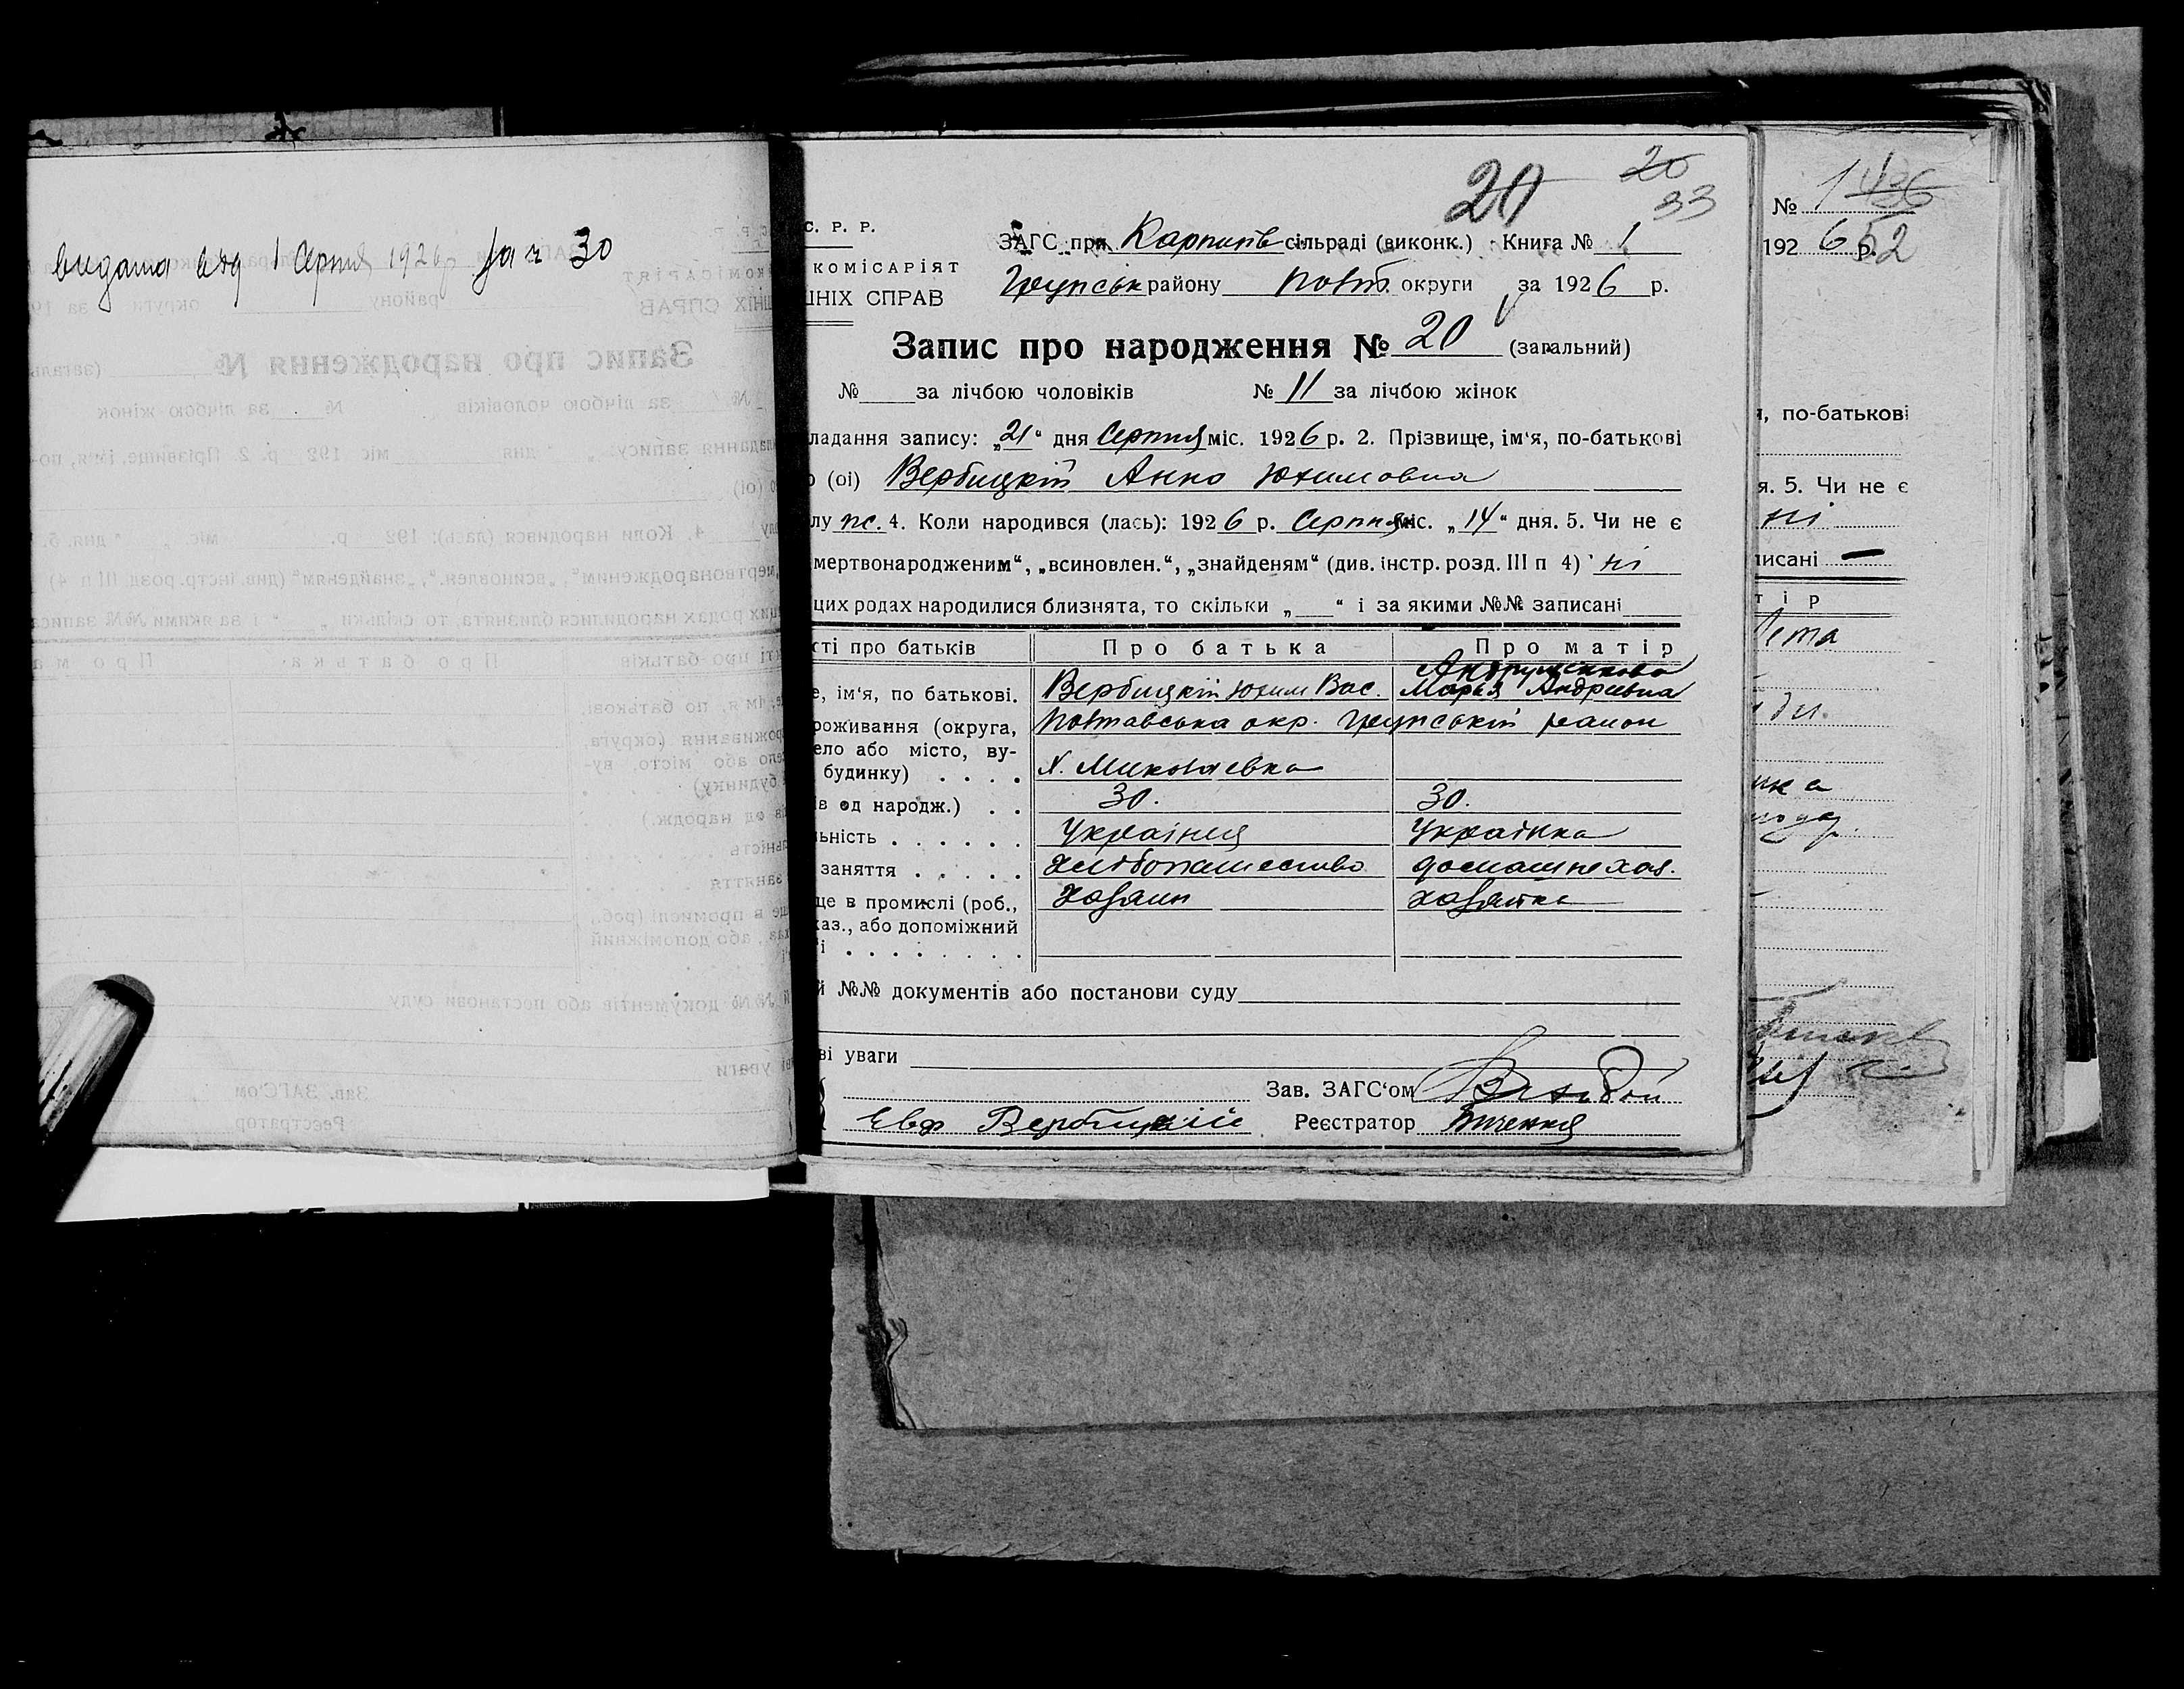 видана 1 Серпня 1926 р за № 30
20
20
33
С. Р. Р.
ЗАГС при Карпилів сільраді (виконк.) Книга № 1
КОМІСАРІЯТ
ШНІХ СПРАВ
району Полт. округи за 1926 р.
Запис про народження № 20 (загальний)
№ за лічбою чоловіків № 11 за лічбою жінок
ладання запису: „21“ дня Серпня міс. 1926 р. 2. Прізвище, ім‘я, по-батькові
(ої) Вербицкій Анно Юхимовна
лу жс. 4. Коли народився (лась): 1926 р. Серпня міс. „14“ дня. 5. Чи не є
мертвонародженим“, „всиновлен.“, „знайденям“ (див. інстр. розд. III п 4) ні
цих родах народилися близнята, то скільки „ “ і за якими №№ записані
ті про батьків Про батька Про матір
Андрущенкова
е, ім‘я, по батькові. Вербицкій Юхим Вас. Марья Андреевна
роживання (округа, Полтавська окр. район
ело або місто, ву-
будинку) . . . . Х. Миколаевка
ів од народж.) . . 30. 30.
льність . . . . . . Українец Українка
заняття . . . . . Хлібопашество домашнє хоз.
ще в промислі (роб., Хозяин Хозяйка
каз., або допоміжний
і . . . . . . . .
й №№ документів або постанови суду
ві уваги
Зав. ЗАГС‘ом
Евф Вербицкій Реєстратор
№ 1 436
1926 р. 52
я, по-батькові
я. 5. Чи не є
ні
писані —
тір